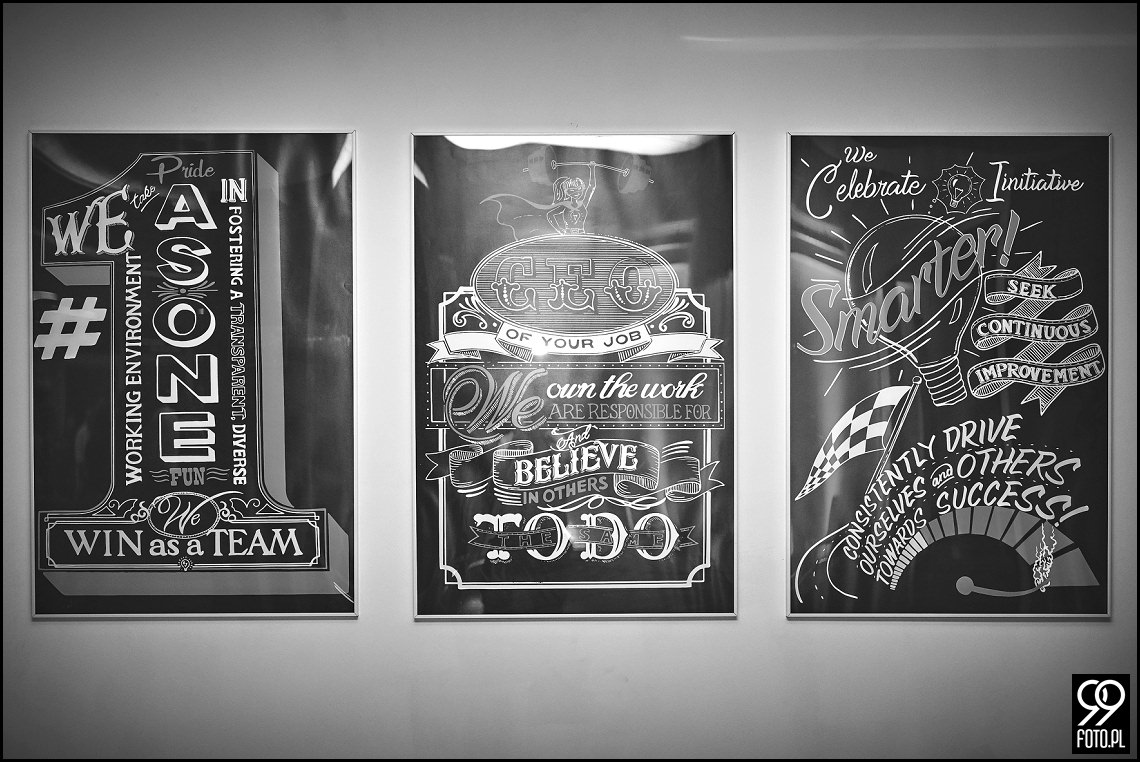 #
WE take Pride
AS ONE
IN FOSTERING A TRANSPARENT, DIVERSE
WORKING ENVIRONMENT
FUN
We
WIN as a TEAM
CEO
OF YOUR JOB
We own the work
ARE RESPONSIBLE FOR
And
BELIEVE
IN OTHERS
TO DO
THE SAME
We
Celebrate Iinitiative
Smarter!
SEEK
CONTINUOUS
IMPROVEMENT
CONSISTENTLY DRIVE
OURSELVES and OTHERS
TOWARDS SUCCESS!
99
FOTO.PL